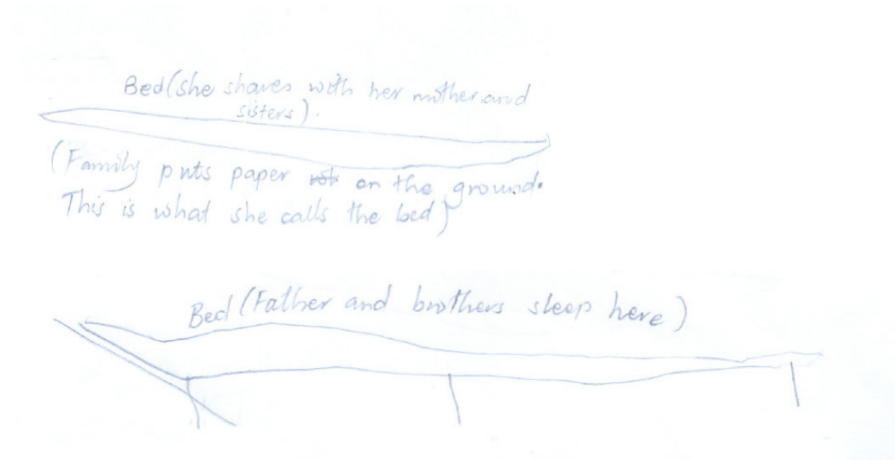 Bed (she shares with her mother and
sisters).
(Family puts paper on the ground.
This is what she calls the bed)
Bed (Father and brothers sleep here)